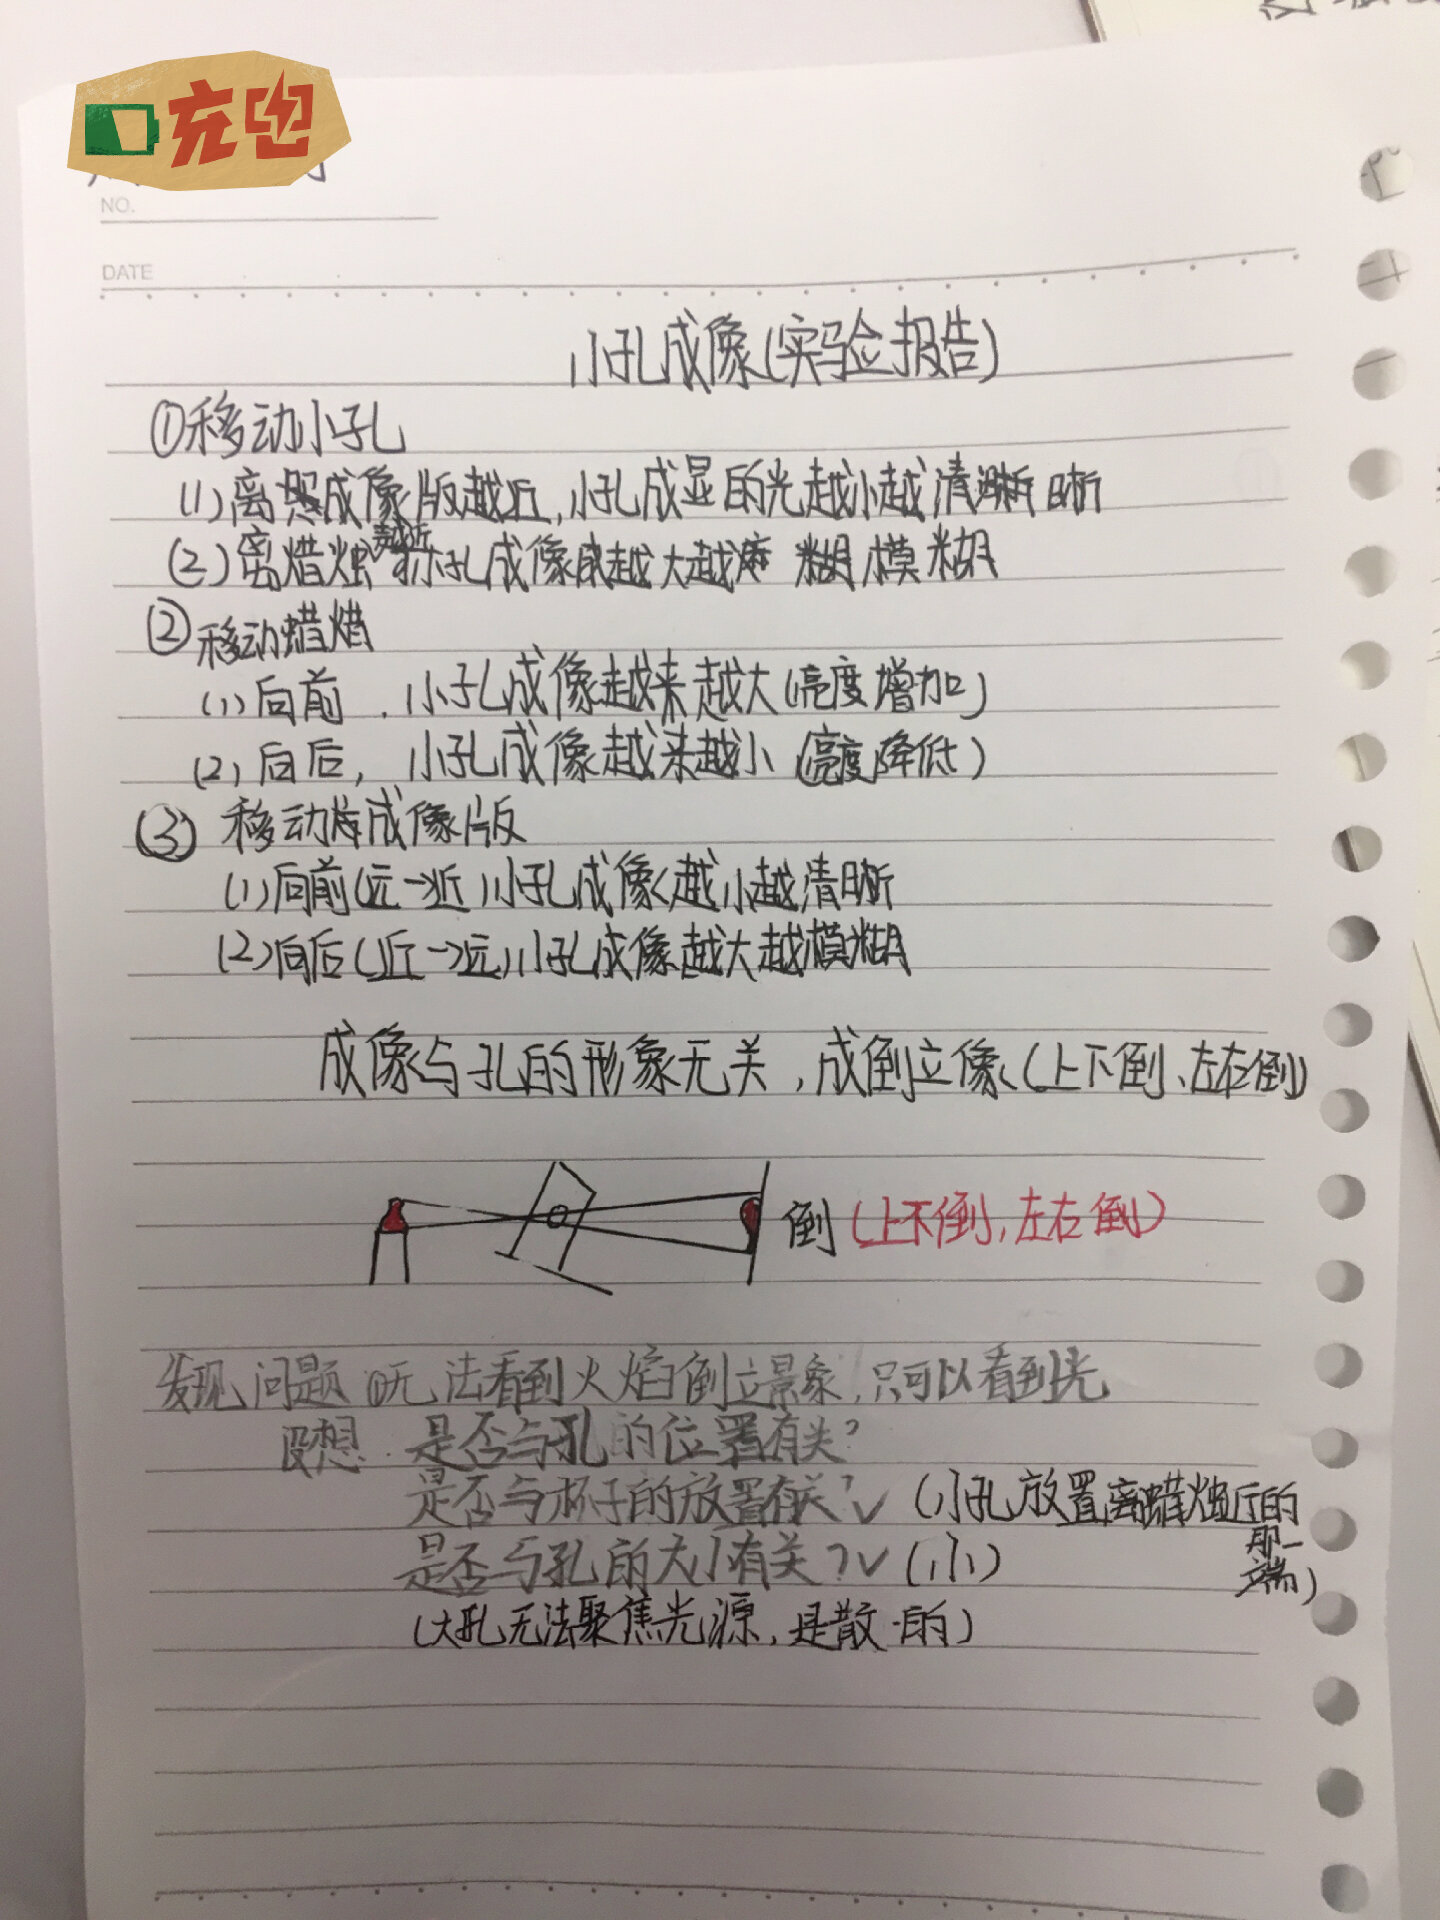 充电
NO.
DATE
小孔成像(实验报告)
①移动小孔
(1)离成像版越近,小孔成显的光越小越清晰
(2)离蜡烛越近小孔成像越大越模糊
②移动蜡烛
(1)向前,小孔成像越来越大(亮度增加)
(2)向后,小孔成像越来越小(亮度降低)
(3)移动成像版
(1)向前(远→近)小孔成像越小越清晰
(2)向后(近→远)小孔成像越大越模糊
成像与孔的形象无关,成倒立像(上下倒、左右倒)
倒(上下倒,左右倒)
发现问题①无法看到火焰倒立景象,只可以看到光
设想.是否与孔的位置有关?
是否与杯子的放置有关?✓(小孔放置离蜡烛近的那一端)
是否与孔的大小有关?✓(小)
(大孔无法聚焦光源,是散的)